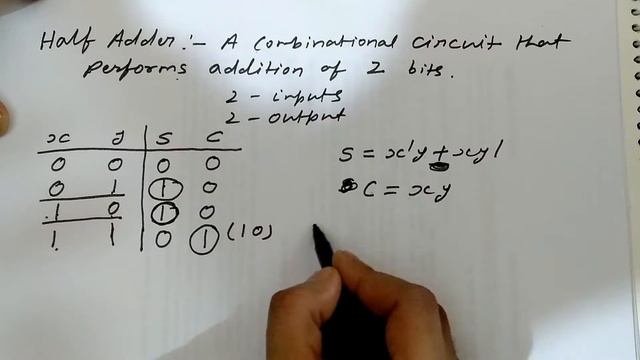 Half Adder:- A combinational circuit that
performs addition of 2 bits.
2 - inputs
2 - output
x y S C
0 0 0 0
0 1 1 0
1 0 1 0
1 1 0 1 (10)
S = x'y + xy'
C = xy